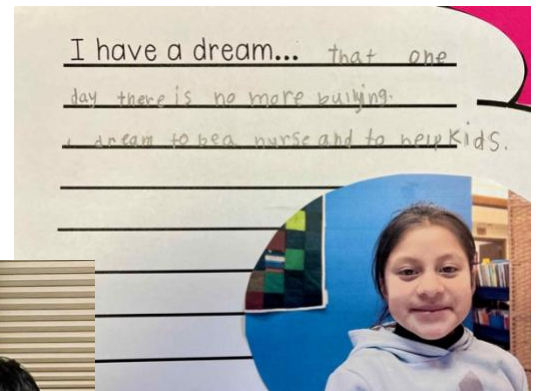 I have a dream... that one
day there is no more bullying.
I dream to be a nurse and to help kids.